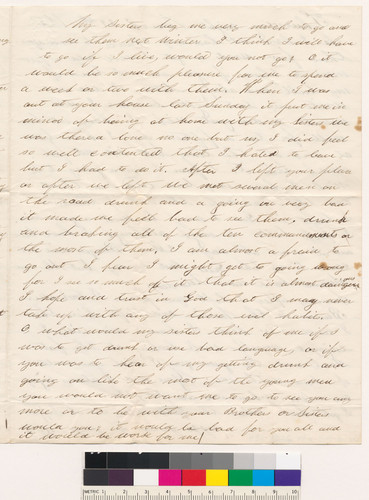 My Sisters beg me very much to go and
see them next Winter I think I will have
to go if I live, would you not go, O it
would be so much pleasure for me to spend
a week or two with them. When I was
out at your house last Sunday it put me in
mind of being at home with my Sisters we
was there a lone no one but us I did feel
so well contented that I hated to leave
but I had to do it, After I left your place
or after we left we met several men on
the road drunk and a going on very bad
it made me feel bad to see them, drunk
and braking all of the ten commandments or
the most of them, I am almost a fraid to
go out I fear I might get to going wrong
for I see so much of it that it is almost dangerous
I hope and trust in God that I may never
take up with any of those evil habits.
O what would my sisters think of me if I
was to get drunk or use bad language, or if
you was to hear of my getting drunk and
going on like the most of the young men
you would not want me to go to see you any
more or to be with your Brothers or Sisters
would you; it would be bad for you all and
it would be worse for me!
METRIC 1 2 3 4 5 6 7 8 9 10